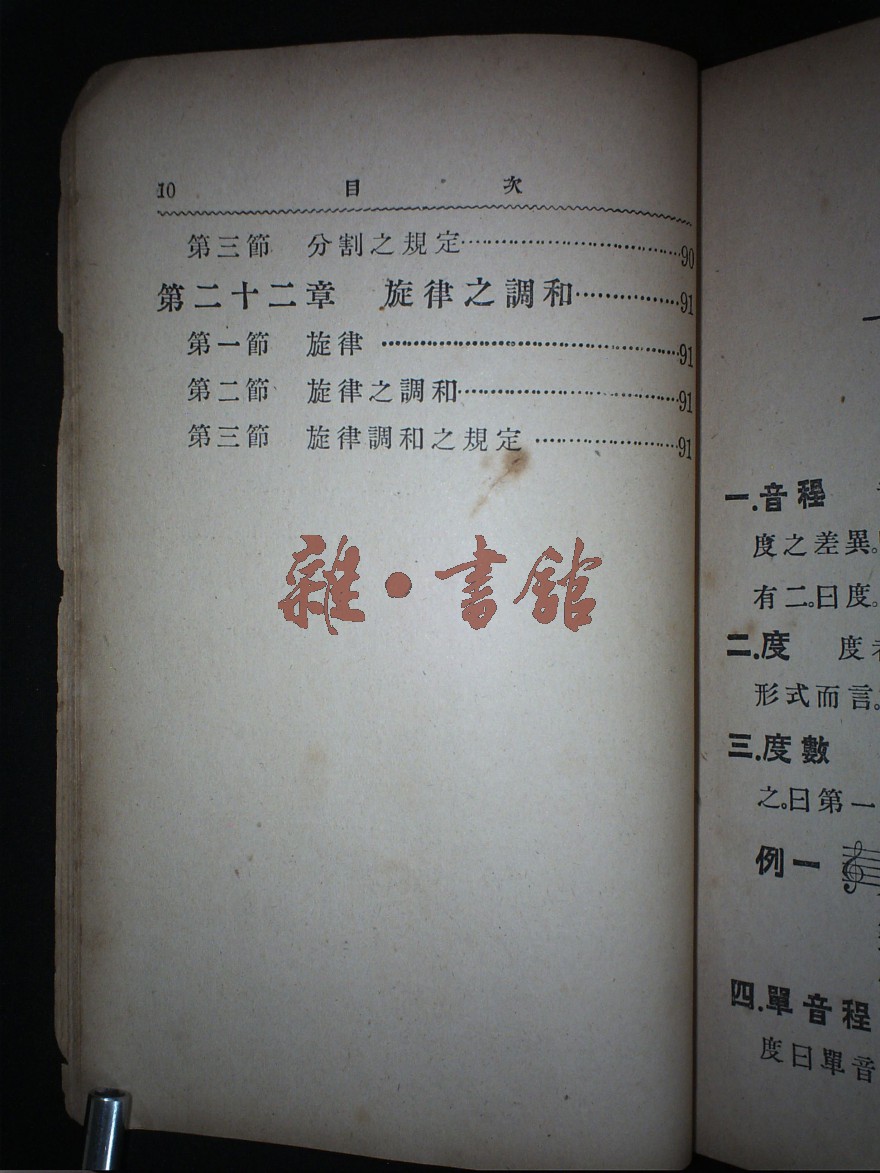 10 目 次
第三節 分割之規定…………………………90
第二十二章 旋律之調和……………91
第一節 旋律 …………………………………91
第二節 旋律之調和…………………………91
第三節 旋律調和之規定 ………………91
雜·書館
一.音程
度之差異。
有二。曰度。
二.度 度
形式而言。
三.度數
之。曰第一
例一
四.單音程
度曰單音